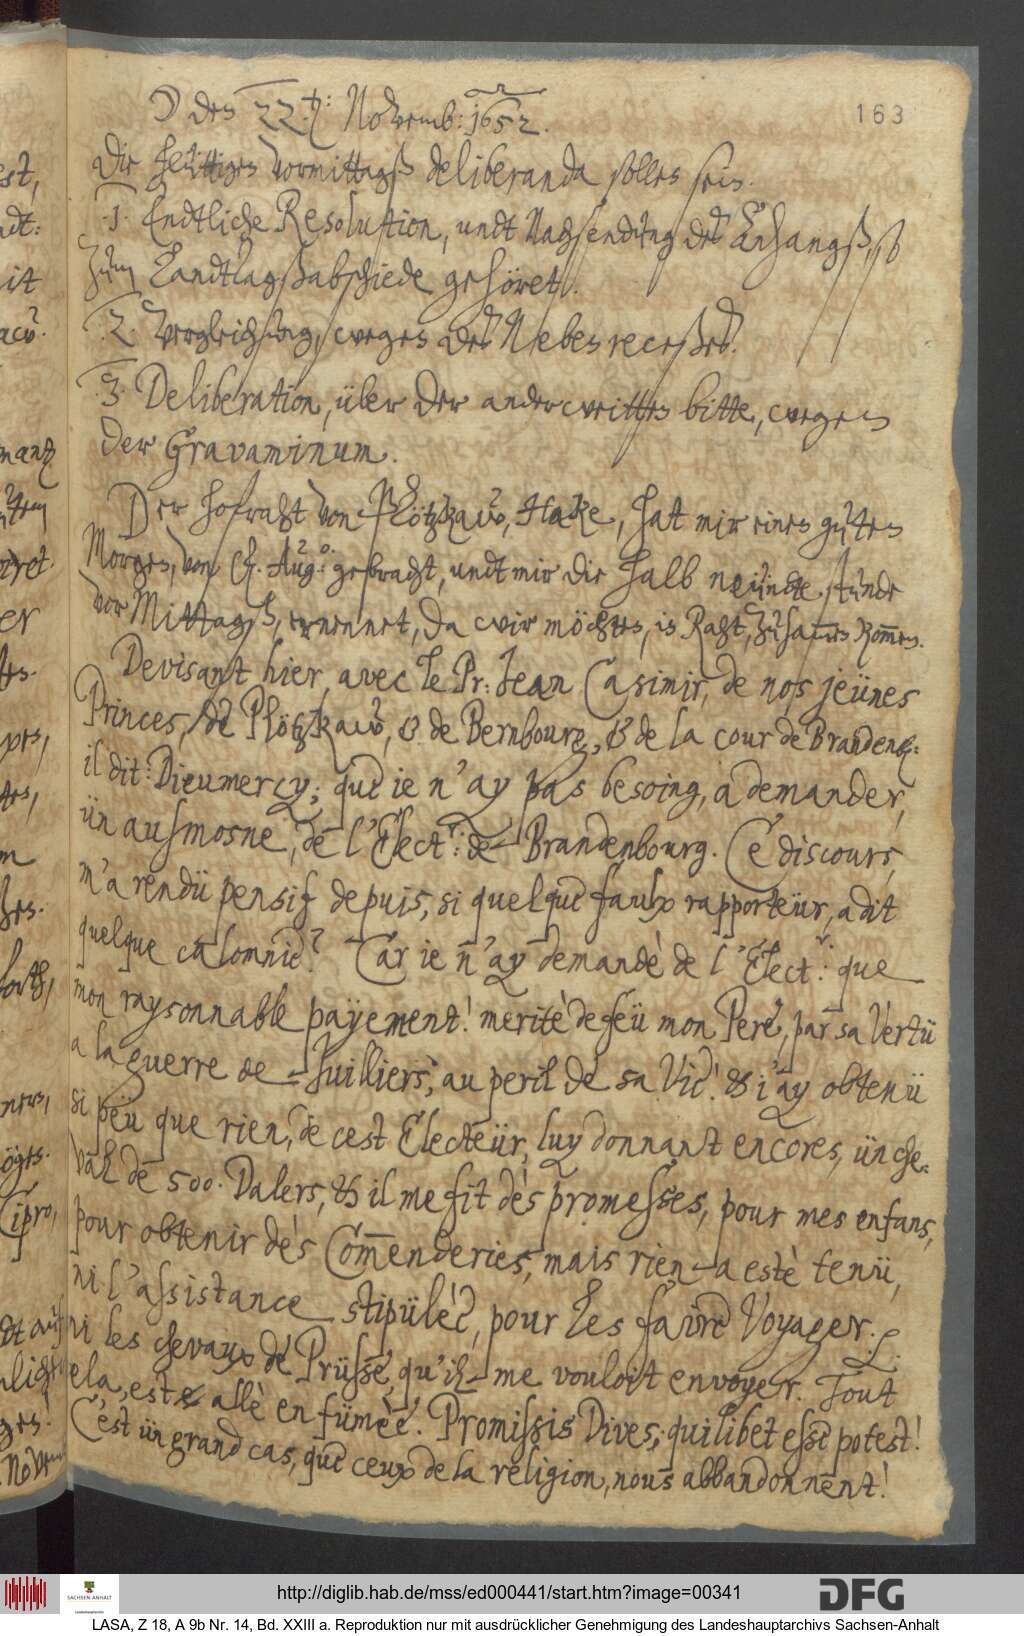 163
☽ den 22.t: Novemb: 1652.
Die heüttigen Vormittagß deliberanda sollen sein.
.1. Endtliche Resolution, undt Nachsendung des Anhangß, so
zum Landtagßabschiede gehöret.
.2. Vergleichung, wegen des Nebenreceßes.
.3. Deliberation, über der anderweitten bitte, wegen
der Gravaminum.
Der hofraht von Plötzkaw, Hake, hat mir einen guten
Morgen, von F. Aug.o gebracht, undt mir die halb neundte stunde
vor Mittags, ernennet, da wir möchten, in Raht, zusammen kommen.
Devisant hier, avec le Pr: Jean Casimir, de nos jeünes
Princes, de Plötzkaw, & de Bernbourg, & de la cour de Brandenb:
il dit: Dieumercy; que ie n'ay pas besoing, a demander,
ün ausmosne, de l'Elect.r: de Brandenbourg. Ce discours,
m'a rendü pensif depuis, si quelque faulx rapporteür, a dit
quelque calomnie? Car ie n'ay demandè de l'Elect.r: que
mon raysonnable payement! meritè de feü mon Pere, par sa Vertü
a la guerre de Juilliers, au peril de sa Vie! & i'ay obtenü
si peü que rien, de cest Electeür, luy donnant encores, ün che-
val de 500. Dalers, & il me fit dès promesses, pour mes enfans,
pour obtenir dès Commenderies, mais rien a estè tenü,
ni l'assistance stipülée, pour les faire Voyager.
ni les chevaux de Prüsse, qu'il me vouloit envoyer. Tout
cela, est allè en fümèe. Promissis Dives, quilibet esse potest!
C'est ün grand cas, que ceux de la religion, nous abbandonnent!
http://diglib.hab.de/mss/ed000441/start.htm?image=00341
SACHSEN-ANHALT
Landeshauptarchiv
DFG
LASA, Z 18, A 9b Nr. 14, Bd. XXIII a. Reproduktion nur mit ausdrücklicher Genehmigung des Landeshauptarchivs Sachsen-Anhalt